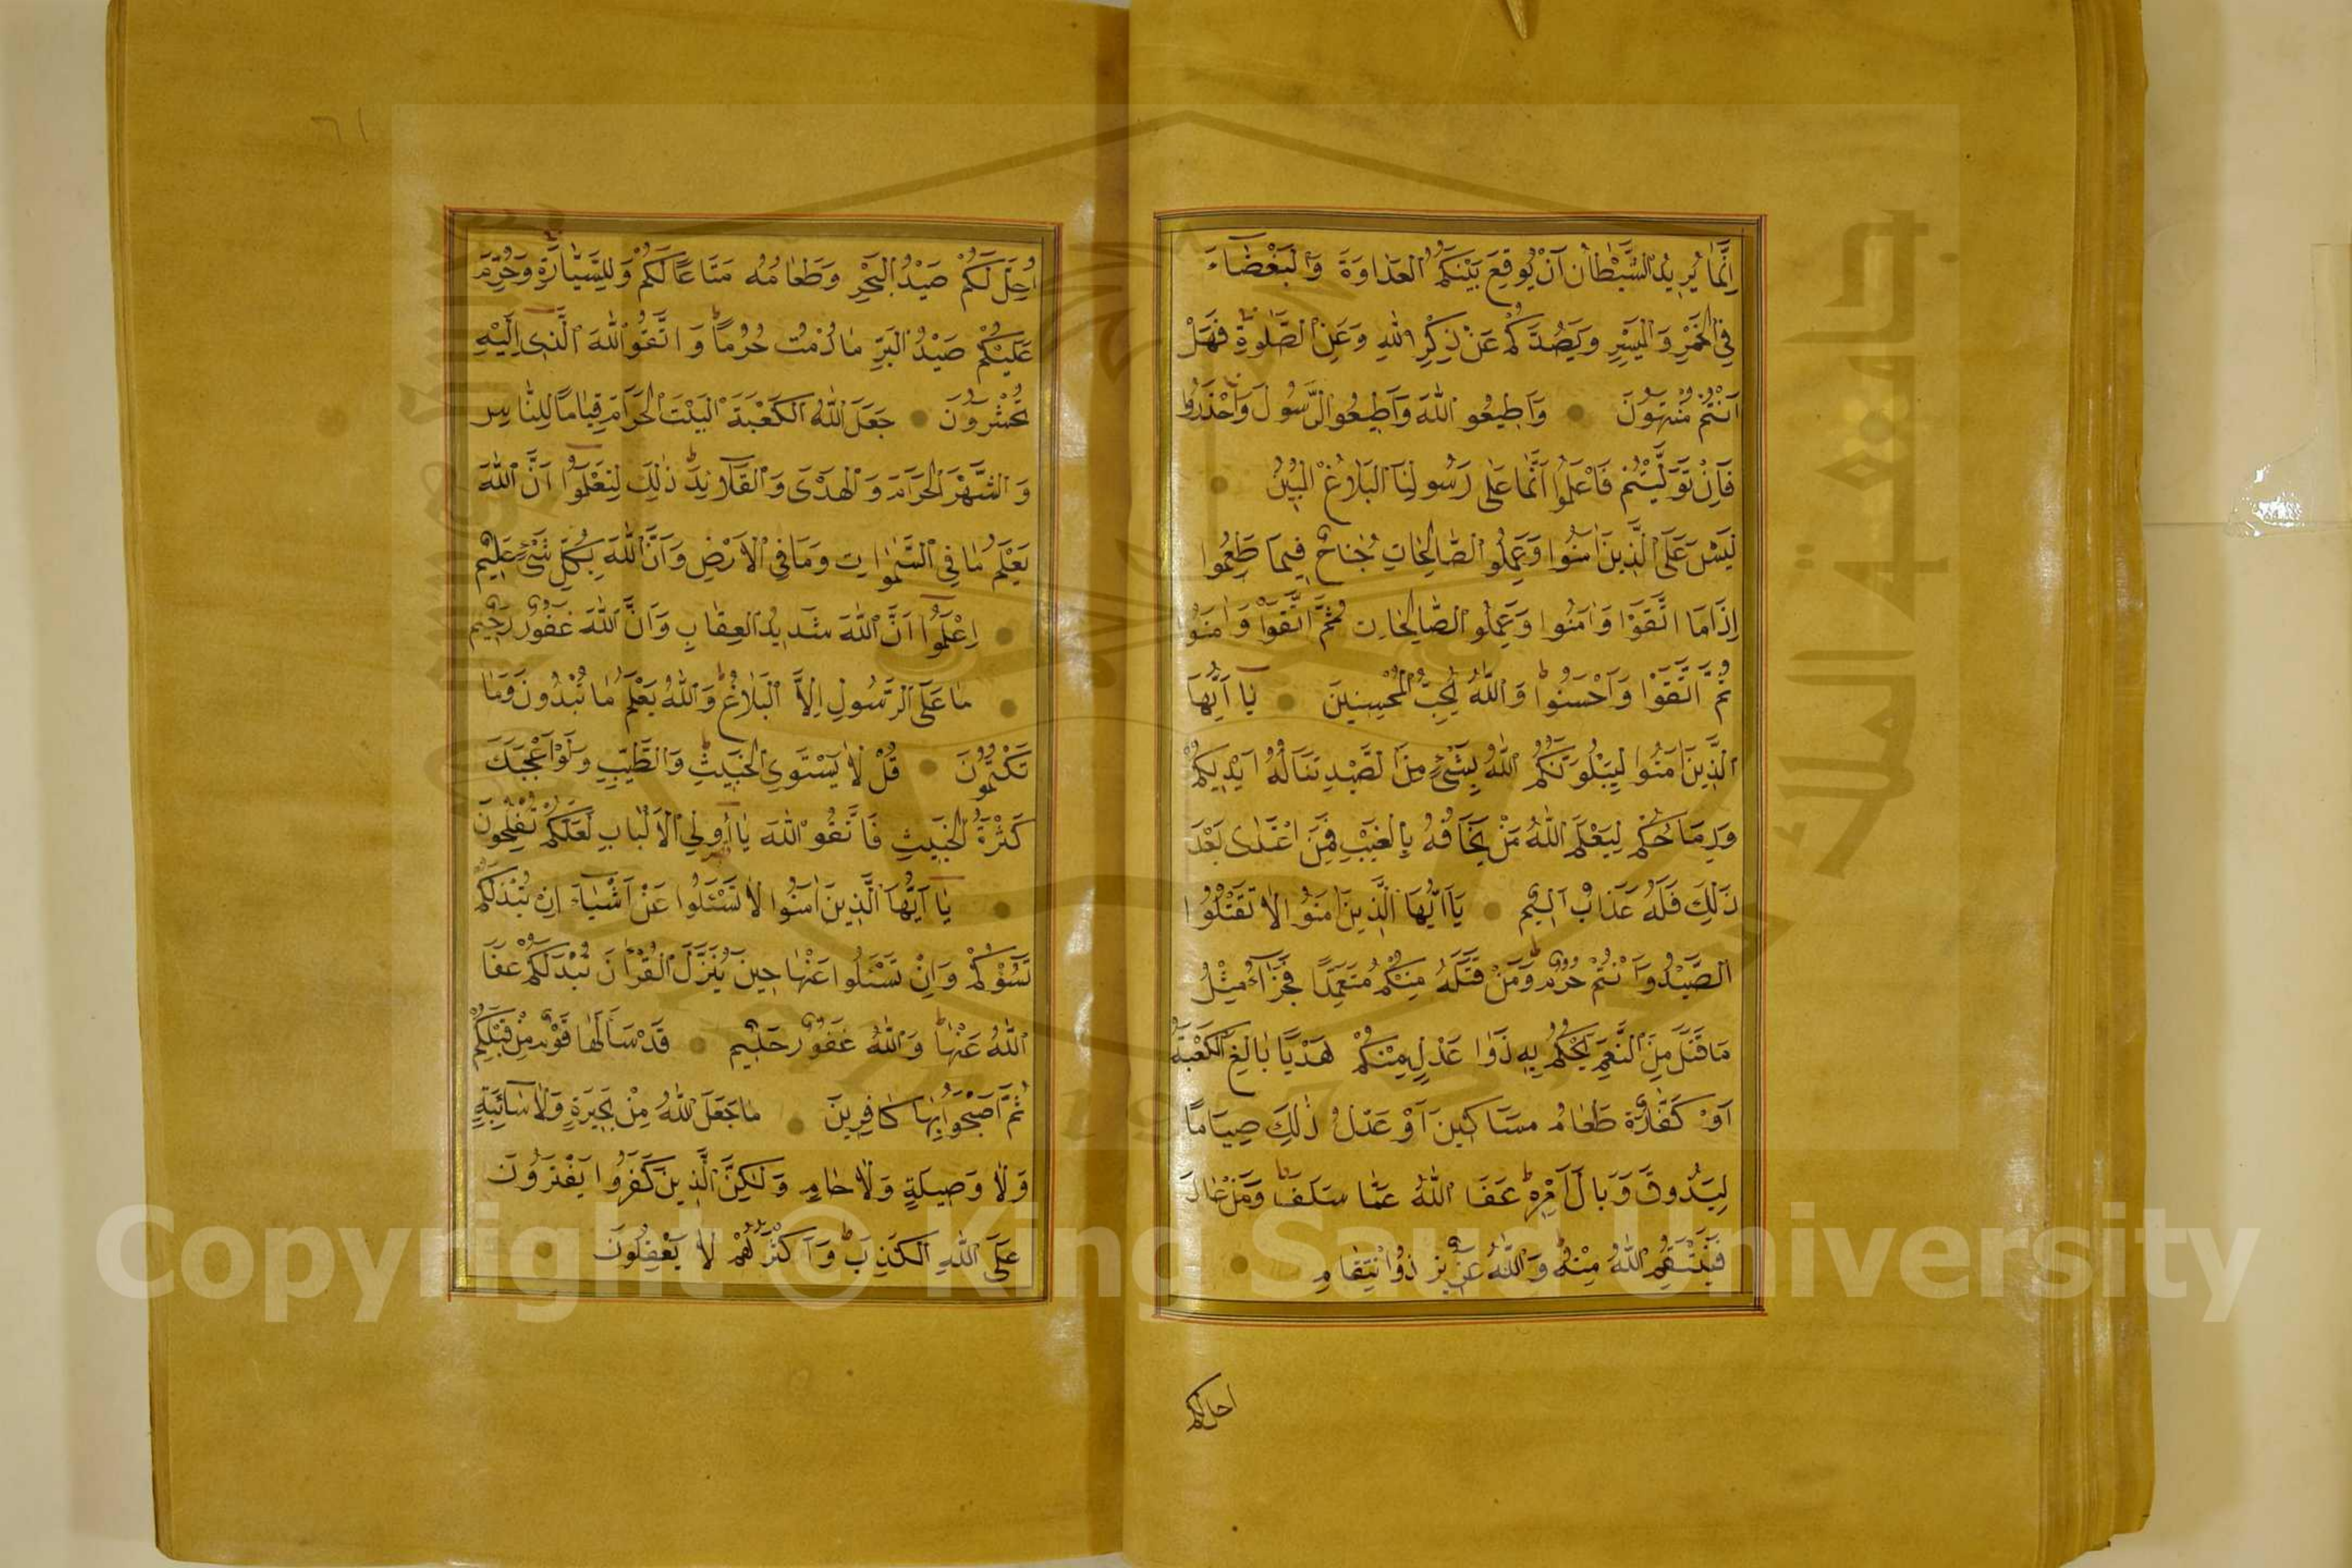 اِنَّمَا يُرِيدُ الشَّيْطَانُ اَنْ يُوقِعَ بَيْنَكُمُ الْعَدَاوَةَ وَالْبَغْضَاءَ
فِي الْخَمْرِ وَالْمَيْسِرِ وَيَصُدَّكُمْ عَنْ ذِكْرِ اللّٰهِ وَعَنِ الصَّلٰوةِ فَهَلْ
اَنْتُمْ مُنْتَهُونَ وَاَطِيعُو اللّٰهَ وَاَطِيعُو الرَّسُولَ وَاحْذَرُوا
فَاِنْ تَوَلَّيْتُمْ فَاعْلَمُوا اَنَّمَا عَلٰى رَسُولِنَا الْبَلَاغُ الْمُبِينُ
لَيْسَ عَلَى الَّذِينَ اٰمَنُوا وَعَمِلُو الصَّالِحَاتِ جُنَاحٌ فِيمَا طَعِمُوا
اِذَا مَا اتَّقَوْا وَاٰمَنُوا وَعَمِلُو الصَّالِحَاتِ ثُمَّ اتَّقَوْا وَاٰمَنُو
ثُمَّ اتَّقَوْا وَاَحْسَنُوا وَاللّٰهُ يُحِبُّ الْمُحْسِنِينَ يَا اَيُّهَا
الَّذِينَ اٰمَنُوا لَيَبْلُوَنَّكُمُ اللّٰهُ بِشَيْءٍ مِنَ الصَّيْدِ تَنَالُهُ اَيْدِيكُمْ
وَرِمَاحُكُمْ لِيَعْلَمَ اللّٰهُ مَنْ يَخَافُهُ بِالْغَيْبِ فَمَنِ اعْتَدٰى بَعْدَ
ذٰلِكَ فَلَهُ عَذَابٌ اَلِيمٌ يَا اَيُّهَا الَّذِينَ اٰمَنُو الَا تَقْتُلُوا
الصَّيْدَ وَاَنْتُمْ حُرُمٌ وَمَنْ قَتَلَهُ مِنْكُمْ مُتَعَمِّدًا فَجَزَاءٌ مِثْلُ
مَا قَتَلَ مِنَ النَّعَمِ يَحْكُمُ بِهِ ذَوَا عَدْلٍ مِنْكُمْ هَدْيًا بَالِغَ الْكَعْبَةِ
اَوْ كَفَّارَةٌ طَعَامُ مَسَاكِينَ اَوْ عَدْلُ ذٰلِكَ صِيَامًا
لِيَذُوقَ وَبَالَ اَمْرِهِ عَفَا اللّٰهُ عَمَّا سَلَفَ وَمَنْ عَادَ
فَيَنْتَقِمُ اللّٰهُ مِنْهُ وَاللّٰهُ عَزِيزٌ ذُو انْتِقَامٍ
احل لكم
٦١
اُحِلَّ لَكُمْ صَيْدُ الْبَحْرِ وَطَعَامُهُ مَتَاعًا لَكُمْ وَلِلسَّيَّارَةِ وَحُرِّمَ
عَلَيْكُمْ صَيْدُ الْبَرِّ مَا دُمْتُمْ حُرُمًا وَاتَّقُو اللّٰهَ الَّذِي اِلَيْهِ
تُحْشَرُونَ جَعَلَ اللّٰهُ الْكَعْبَةَ الْبَيْتَ الْحَرَامَ قِيَامًا لِلنَّاسِ
وَالشَّهْرَ الْحَرَامَ وَالْهَدْيَ وَالْقَلَائِدَ ذٰلِكَ لِتَعْلَمُوا اَنَّ اللّٰهَ
يَعْلَمُ مَا فِي السَّمٰوَاتِ وَمَا فِي الْاَرْضِ وَاَنَّ اللّٰهَ بِكُلِّ شَيْءٍ عَلِيمٌ
اِعْلَمُوا اَنَّ اللّٰهَ شَدِيدُ الْعِقَابِ وَاَنَّ اللّٰهَ غَفُورٌ رَحِيمٌ
مَا عَلَى الرَّسُولِ اِلَّا الْبَلَاغُ وَاللّٰهُ يَعْلَمُ مَا تُبْدُونَ وَمَا
تَكْتُمُونَ قُلْ لَا يَسْتَوِي الْخَبِيثُ وَالطَّيِّبُ وَلَوْ اَعْجَبَكَ
كَثْرَةُ الْخَبِيثِ فَاتَّقُو اللّٰهَ يَا اُولِي الْاَلْبَابِ لَعَلَّكُمْ تُفْلِحُونَ
يَا اَيُّهَا الَّذِينَ اٰمَنُوا لَا تَسْئَلُوا عَنْ اَشْيَاءَ اِنْ تُبْدَ لَكُمْ
تَسُؤْكُمْ وَاِنْ تَسْئَلُوا عَنْهَا حِينَ يُنَزَّلُ الْقُرْاٰنُ تُبْدَ لَكُمْ عَفَا
اللّٰهُ عَنْهَا وَاللّٰهُ غَفُورٌ حَلِيمٌ قَدْ سَاَلَهَا قَوْمٌ مِنْ قَبْلِكُمْ
ثُمَّ اَصْبَحُوا بِهَا كَافِرِينَ مَا جَعَلَ اللّٰهُ مِنْ بَحِيرَةٍ وَلَا سَائِبَةٍ
وَلَا وَصِيلَةٍ وَلَا حَامٍ وَلٰكِنَّ الَّذِينَ كَفَرُوا يَفْتَرُونَ
عَلَى اللّٰهِ الْكَذِبَ وَاَكْثَرُهُمْ لَا يَعْقِلُونَ
Copyright © King Saud University